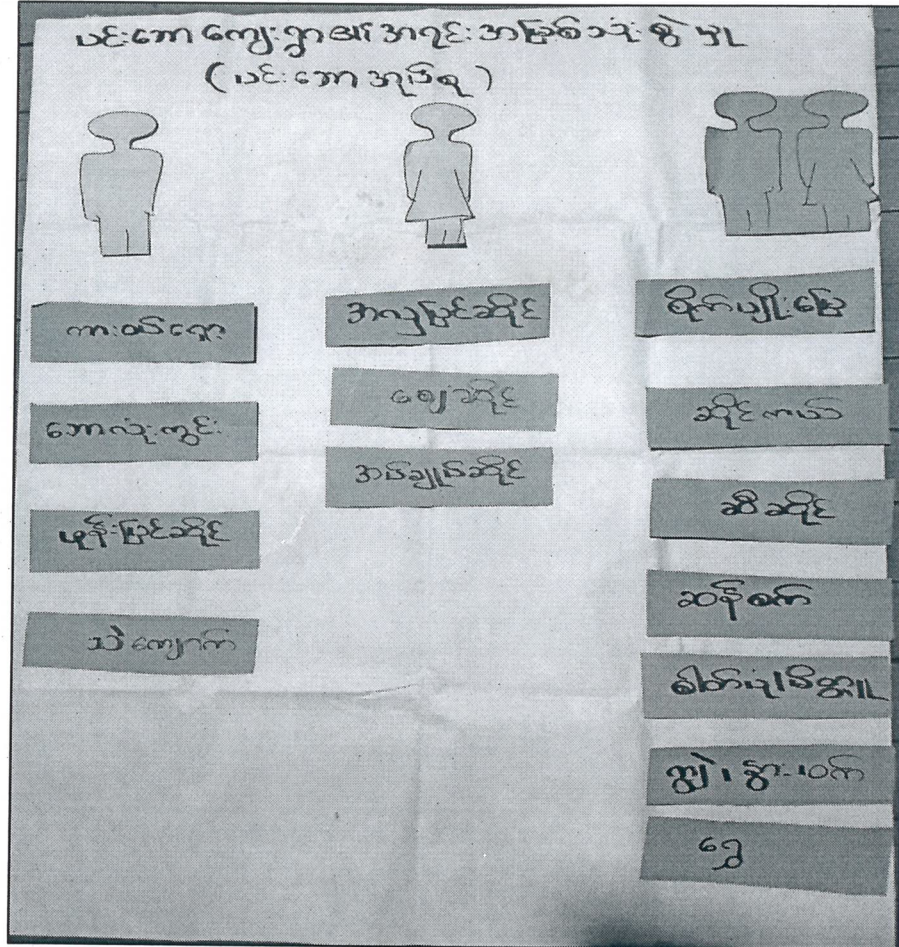 ပင်းဘော ကျေးရွာ၏ အရင်းအမြစ်သုံးစွဲမှု
(ပင်းဘော အုပ်စု)
ကားဝပ်ရှော့
ဘောလုံးကွင်း
ဖုန်းပြင်ဆိုင်
သဲကျောက်
အလှပြင်ဆိုင်
ဈေးဆိုင်
အပ်ချုပ်ဆိုင်
စိုက်ပျိုးမြေ
ဆိုင်ကယ်
ဆီဆိုင်
ဆန်စက်
ဓါတ်ပုံ၊ဗီဒွီယို
ကျွဲ၊ နွား၊ ဝက်
ရွှေ